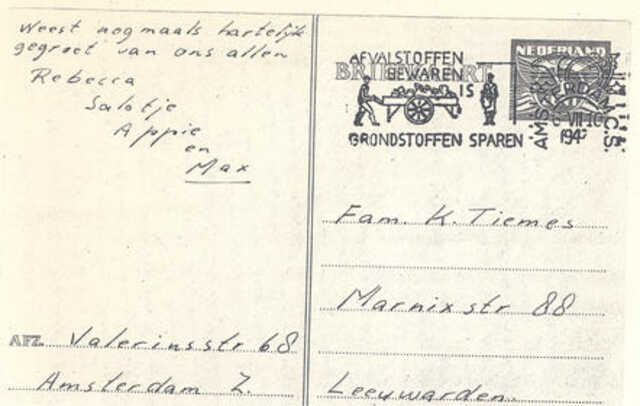 Weest nogmaals hartelijk
gegroet van ons allen
Rebecca
Salotje
Appie
en
Max
AFZ. Valeriusstr 68
Amsterdam Z.
NEDERLAND
AFVALSTOFFEN
BRIEFKAART
BEWAREN
IS
GRONDSTOFFEN SPAREN
AMSTERDAM C.S.
VII 10
194
Fam. K. Tiemes
Marnixstr 88
Leeuwarden.